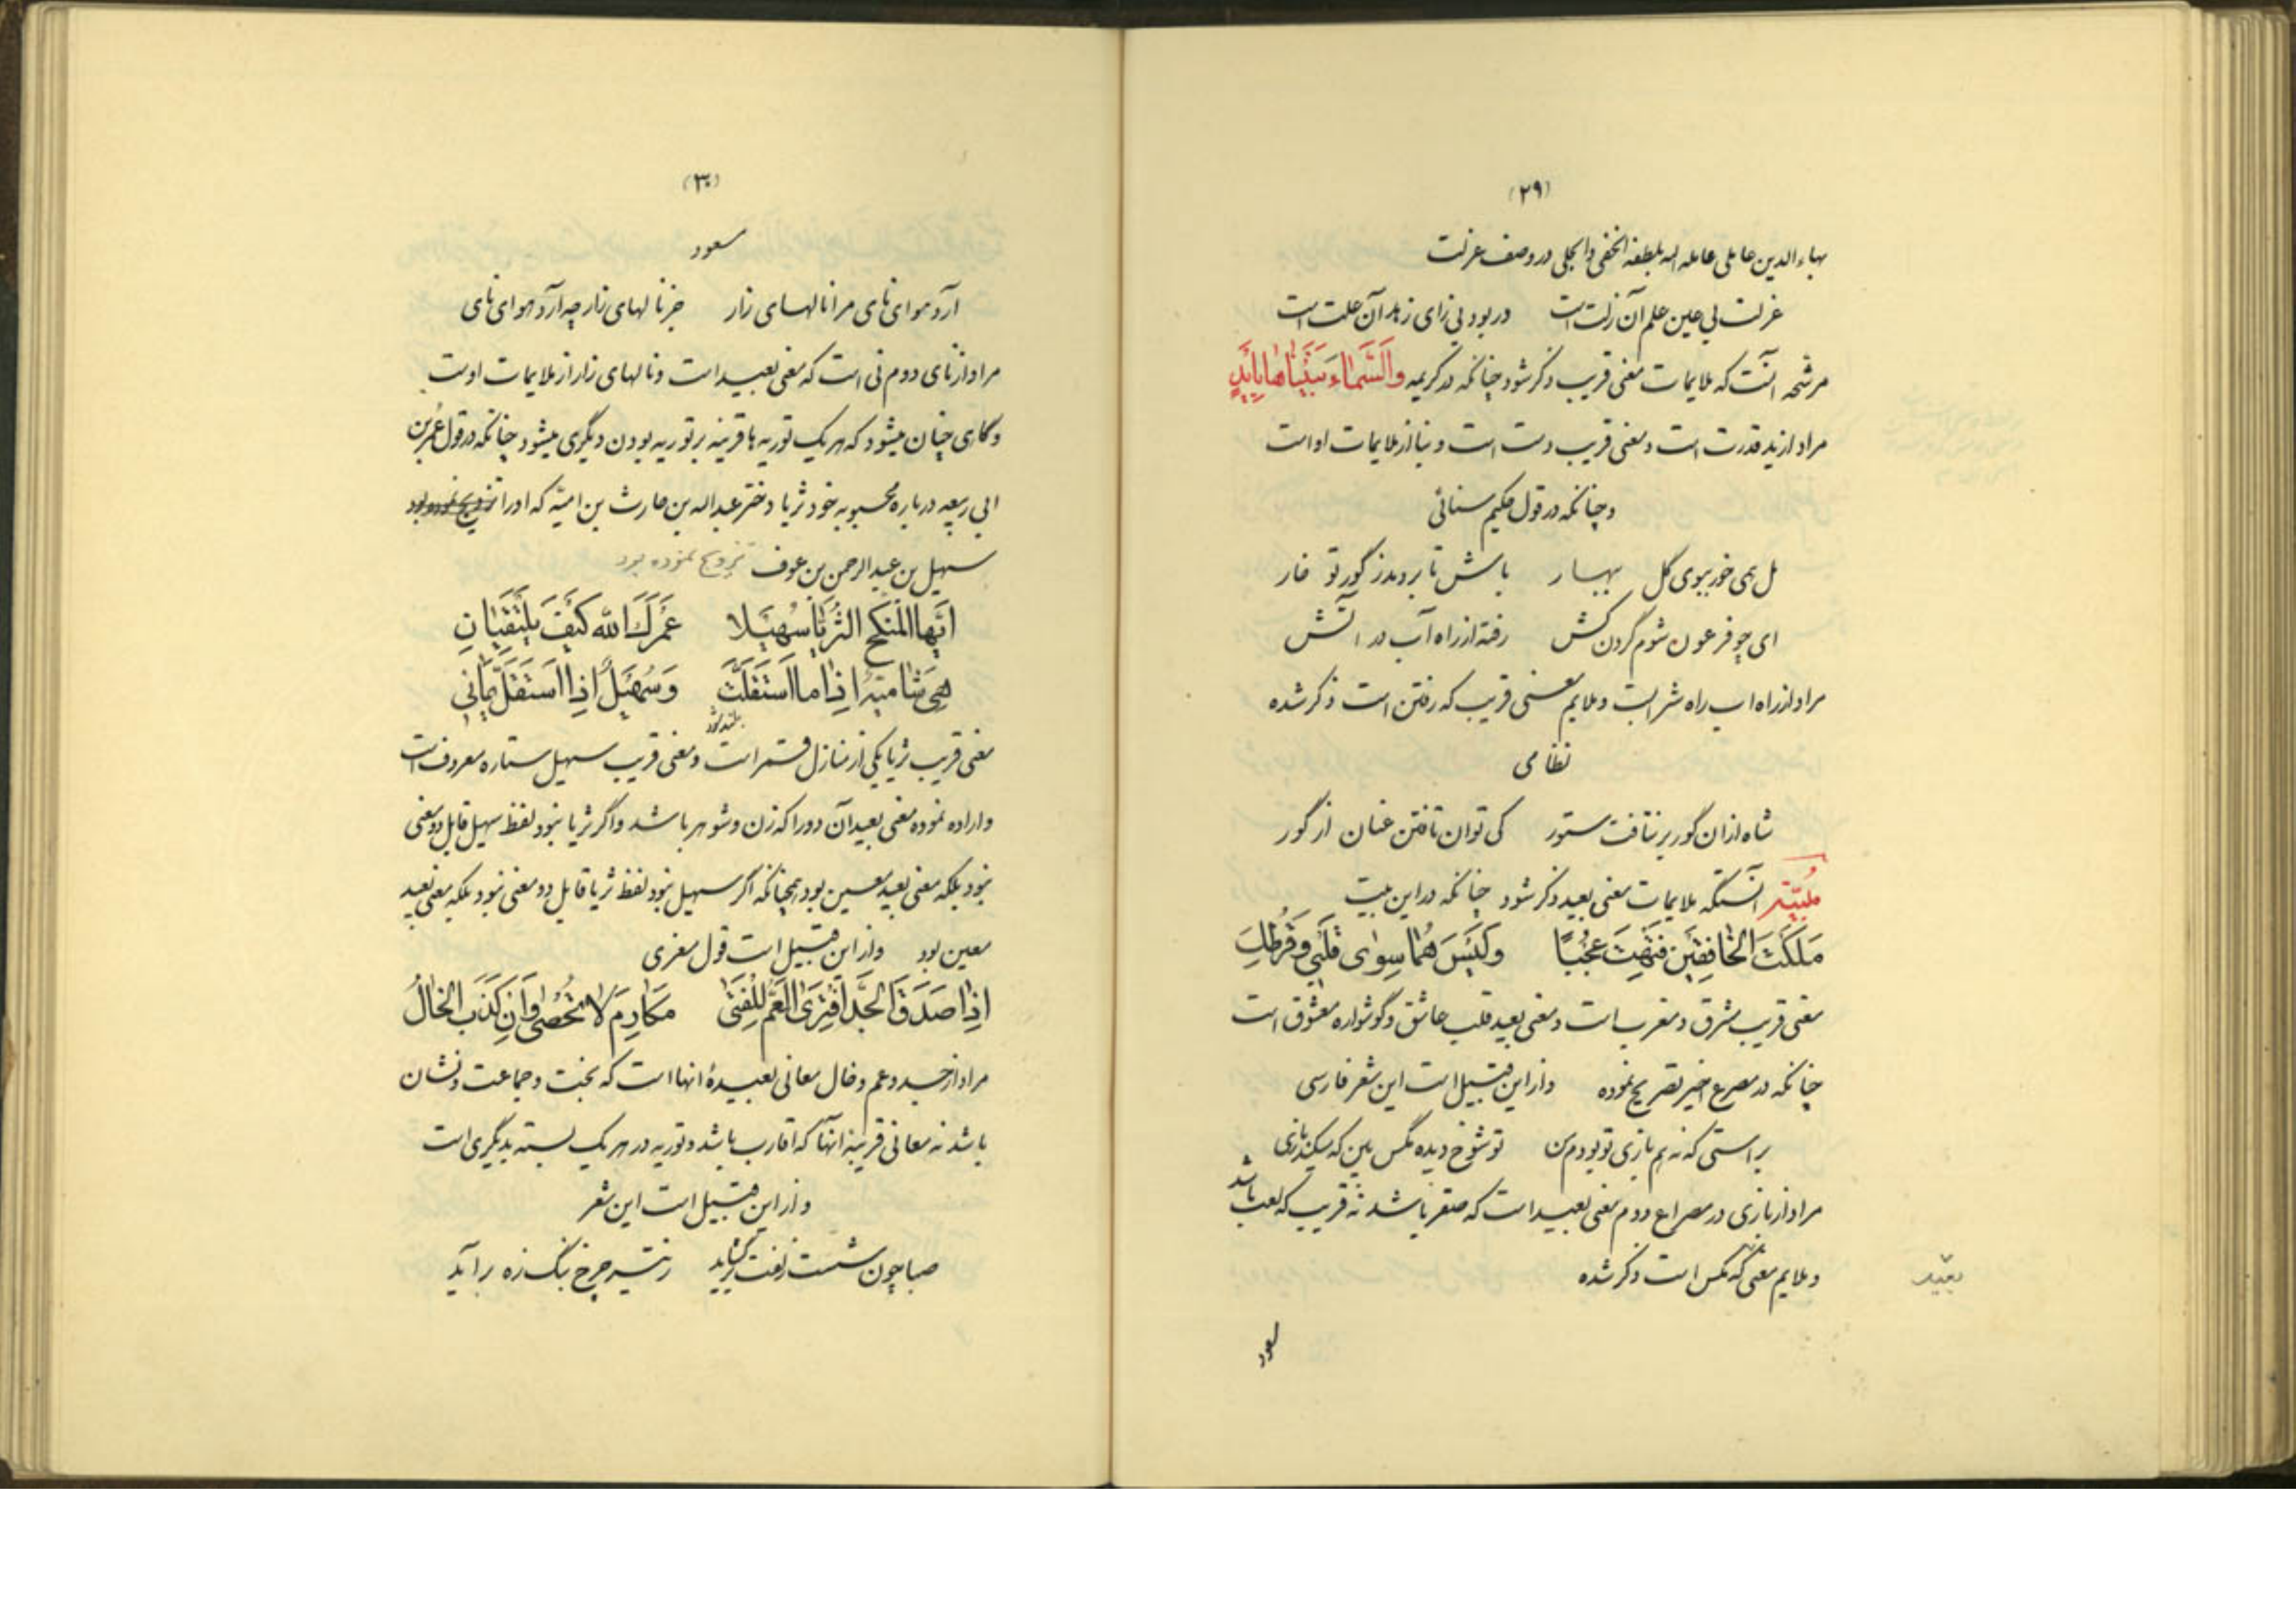 (۲۹)
بهاءالدین عاملی عامله الله بلطفه الخفی والجلی در وصف عزلت
عزلت بی عین علم آن زلت است در بود بی زای زهد آن علت است
مرشحه آنست که ملایمات معنی قریب ذکر شود چنانکه در کریمه وَالسَّمٰاءَ بَنَیْنٰاهٰا بِاَیْدٍ
مراد از ید قدرت است و معنی قریب دست است و بنا از ملایمات او است
و چنانکه در قول حکیم سنائی
مل همی خور ببوی گل بهار باش تا بردمد ز گور تو خار
ای چو فرعون شوم گردن کش رفته از راه آب در اتش
مراد از راه اب راه شرابست و ملایم معنی قریب که رفتن است ذکر شده
نظامی
شاه ازان گور بر نتافت ستور کی توان تافتن عنان از گور
مُبَیَّنه آنستکه ملایمات معنی بعید ذکر شود چنانکه در این بیت
مَلَکْتَ الْخٰافِقَیْنِ فَتَهِتَ عُجْبًا وَلَیْسَ هُمٰا سِوٰی قَلْبِی وَقُرْطِكِ
معنی قریب مشرق و مغرب است و معنی بعید قلب عاشق و گوشواره معشوق است
چنانکه در مصرع اخیر تصریح نموده و از این قبیل است این شعر فارسی
براستی که نه هم بازی تو بودم من تو شوخ دیده مگس بین که میکند بازی
مراد از بازی در مصراع دوم معنی بعید است که صقر باشد نه قریب که لعب باشد
و ملایم معنی که مگس است ذکر شده
بعید
مسعود
(۳۰)
مسعود
آرد هوای نای مرا نالهای زار جز نالهای زار چه آرد هوای نای
مراد از نای دوم نی است که معنی بعید است و نالهای زار از ملایمات اوست
و گاهی چنان میشود که هر یک توریه ها قرینه بر توریه بودن دیگری میشود چنانکه در قول عُمَر بن
ابی ربیعه درباره محبوبه خود ثریا دختر عبدالله بن حارث بن امیّه که او را تزویج نموده بود
سهیل بن عبدالرحمن بن عوف تزویج نموده بود
اَیُّهَا الْمُنْکِحُ الثُّرَیّٰا سُهَیْلا عَمْرَكَ اللّٰه کَیْفَ یَلْتَقِیٰانِ
هِیَ شٰامِیَّةٌ اِذٰا مَا اسْتَقَلَّتْ وَسُهَیْلٌ اِذَا اسْتَقَلَّ یَمٰانِی
بلند شد
معنی قریب ثریا یکی از منازل قمر است و معنی قریب سهیل ستاره معروف است
و اراده نموده معنی بعید آن دو را که زن و شوهر باشد و اگر ثریا نبود لفظ سهیل قابل دو معنی
نبود بلکه معنی بعید معین بود همچنانکه اگر سهیل نبود لفظ ثریا قابل دو معنی نبود بلکه معنی بعید
معین بود و از این قبیل است قول معری
اِذٰا صَدَقَ الْجَدُّ افْتَرَی الْعَمُّ لِلْفَتٰی مَکٰارِمَ لٰا تُحْصٰی وَاِنْ کَذَبَ الْخٰالُ
مراد از جد و عم و خال معانی بعیدهٔ انها است که بخت و جماعت و نشان
باشد نه معانی قریبه انها که اقارب باشد و توریه در هر یک بسته بدیگری است
و از این قبیل است این شعر
صبا چون شست زلفت برگشاید ز تیر چرخ بانگ زه برآید